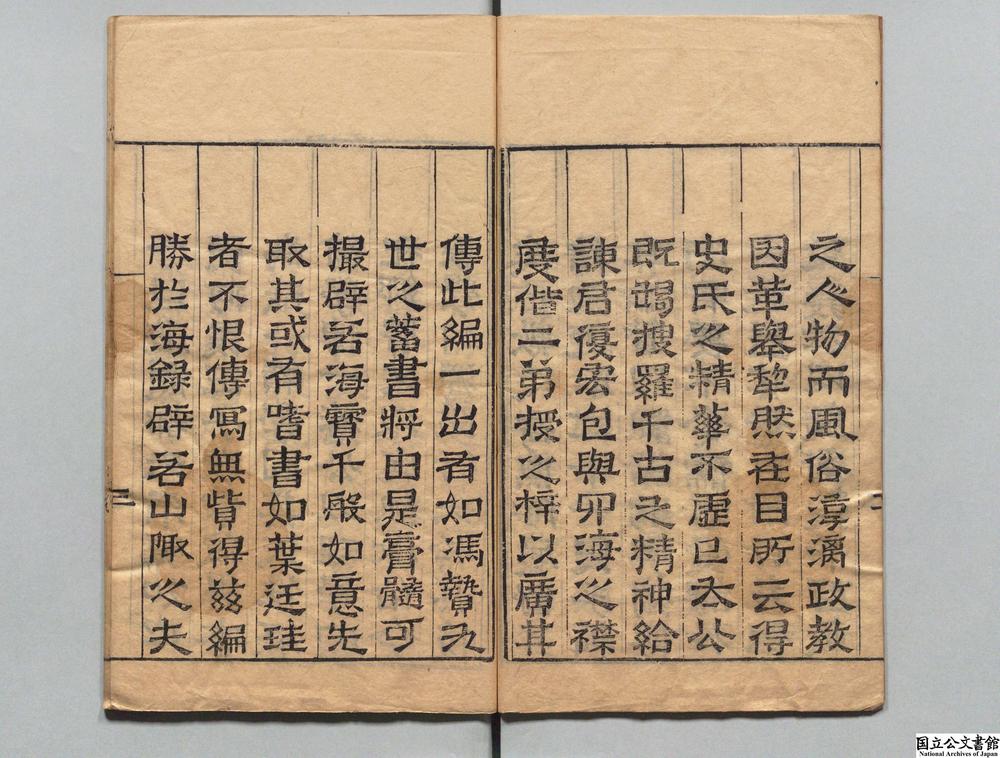 之人物而風俗淳漓政教
因革舉犁然在目所云得
史氏之精華不虛已太公
既竭搜羅千古之精神給
諫君復宏包與卯海之襟
度偕二弟授之梓以廣其
傳此編一出者如馮贄九
世之蓄書將由是膏髓可
撮辟若海寶千般如意先
取其或有嗜書如葉廷珪
者不恨傳寫無貲得茲編
勝於海錄辟若山陬之夫
二
三
国立公文書館
National Archives of Japan